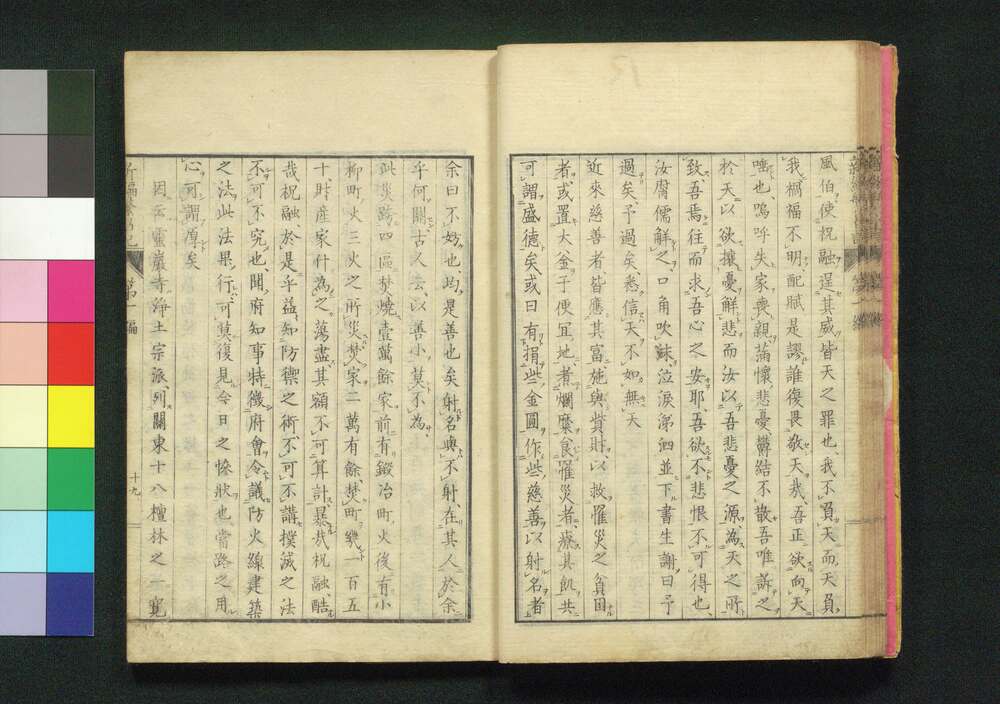 風伯使祝融逞其威皆天之罪也、我不負天而天負
我、禍福不明配賦是謬誰復畏敬天哉吾正欲向天
嗑也、嗚呼失家喪親滿懷悲憂欝結不散吾唯訴之
於天以欲攘憂解悲而汝以吾悲憂之源為天之所
致吾焉往而求吾心之安耶、吾欲不悲恨不可得也、
汝腐儒解之、口角吹沫泣淚涕泗並下書生謝曰予
過矣、予過矣悉信天不如無天
近來慈善者皆應其富施與貲財以救罹災之貧困
者或置大釜于便宜地、煮爛糜食罹災者、療其飢共
可謂盛德矣或曰有捐些金圓作些慈善以射名者
余曰不妨也、均是善也矣射名與不射、在其人於余
乎何關古人云、以善小、莫不為、
此災跨四區焚燒壹萬餘家前有鍛冶町火後有小
柳町火三火之所災焚家二萬有餘焚町幾一百五
十、財產家什為之蕩盡其額不可算計暴哉祝融、酷
哉祝融、於是乎益知防禦之術不可不講撲滅之法
不可不究也、聞府知事特徵府會令議防火線建築
之法此法果行可莫復見今日之慘狀也當路之用
心可謂厚矣
因云靈巖寺淨土宗派、列關東十八檀林之一寬
第一編
十九